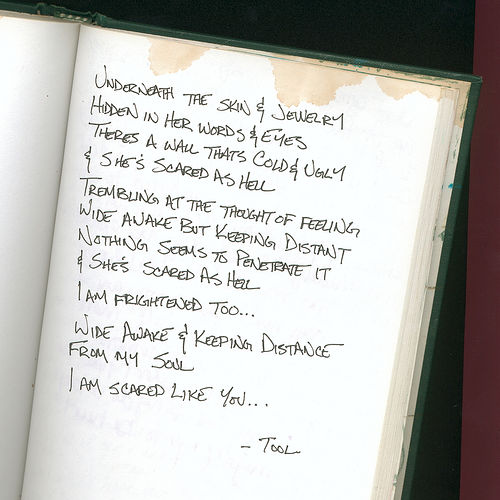 UNDERNEATH THE SKIN & JEWELRY
HIDDEN IN HER WORDS & EYES
THERES A WALL THATS COLD & UGLY
& SHE'S SCARED AS HELL
TREMBLING AT THE THOUGHT OF FEELING
WIDE AWAKE BUT KEEPING DISTANT
NOTHING SEEMS TO PENETRATE IT
& SHE'S SCARED AS HELL
I AM FRIGHTENED TOO...
WIDE AWAKE & KEEPING DISTANCE
FROM MY SOUL
I AM SCARED LIKE YOU...
- TOOL